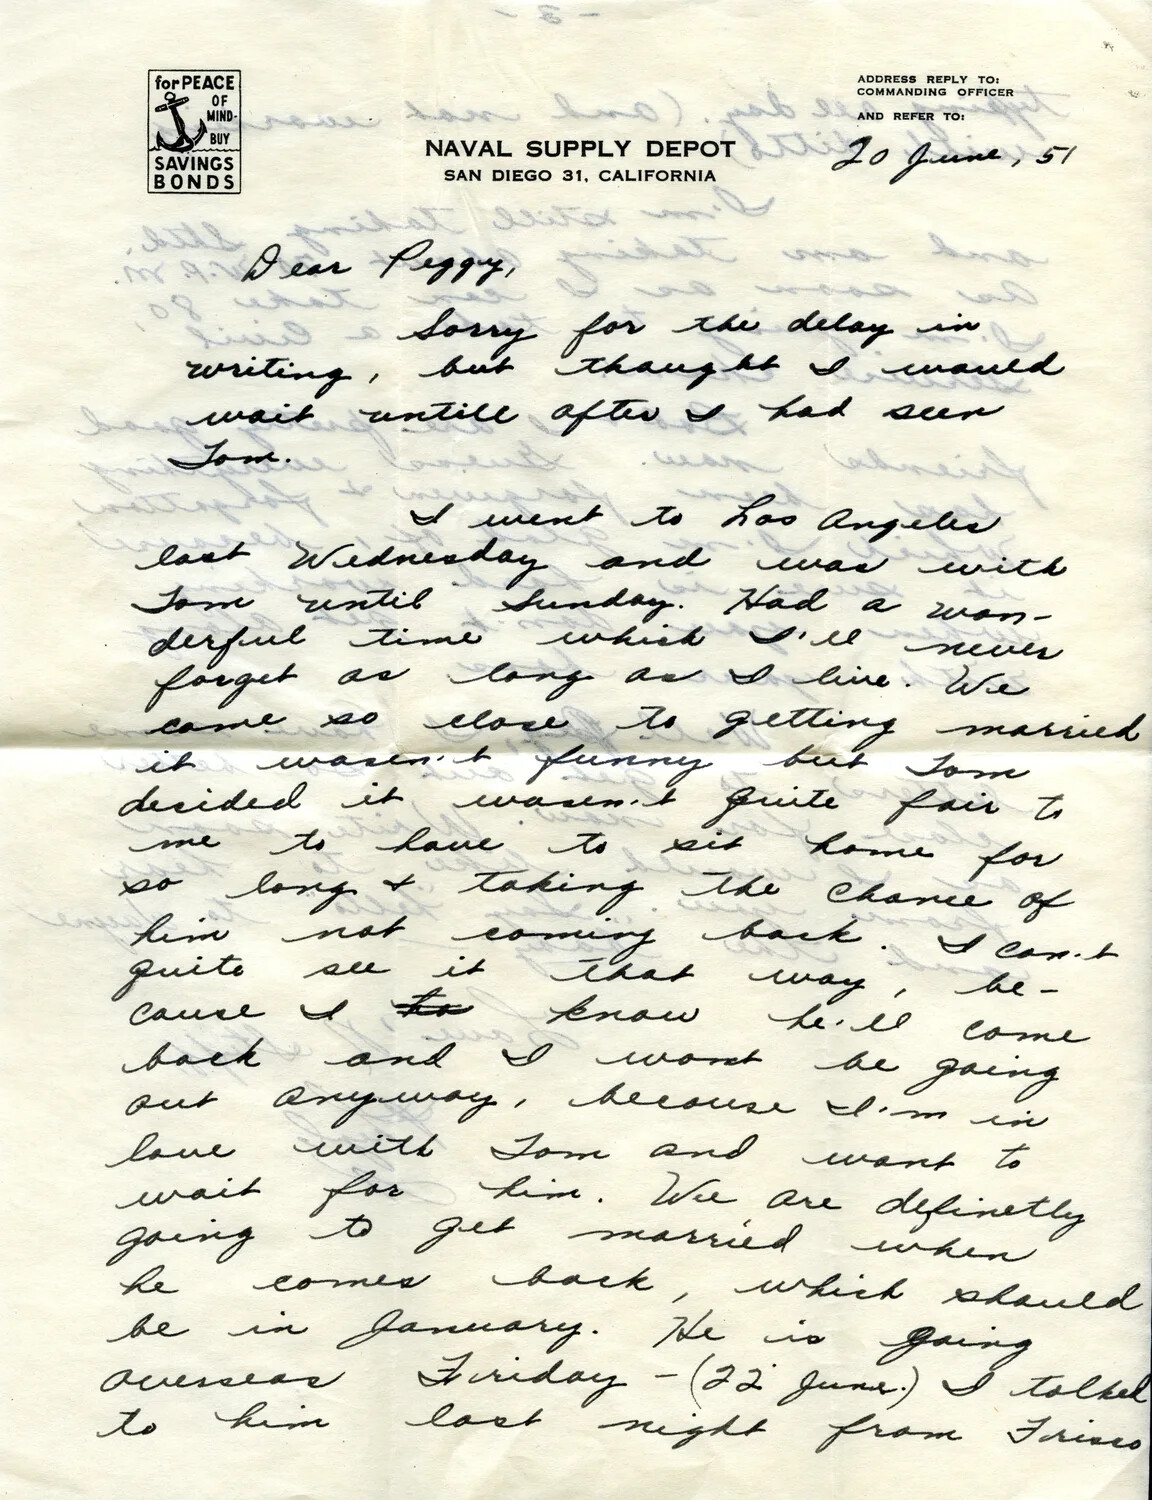 for PEACE
OF
MIND-
BUY
SAVINGS
BONDS
ADDRESS REPLY TO:
COMMANDING OFFICER
AND REFER TO:
NAVAL SUPPLY DEPOT
SAN DIEGO 31, CALIFORNIA
20 June, 51
Dear Peggy,
Sorry for the delay in
writing, but thought I would
wait untill after I had seen
Tom.
I went to Los Angeles
last Wednesday and was with
Tom until Sunday. Had a won-
derful time which I'll never
forget as long as I live. We
came so close to getting married
it wasn't funny but Tom
decided it wasn't quite fair to
me to have to sit home for
so long & taking the chance of
him not coming back. I can't
quite see it that way, be-
cause I know he'll come
back and I wont be going
out anyway, because I'm in
love with Tom and want to
wait for him. We are definetly
going to get married when
he comes back, which should
be in January. He is going
overseas Friday - (22 June.) I talked
to him last night from Frisco